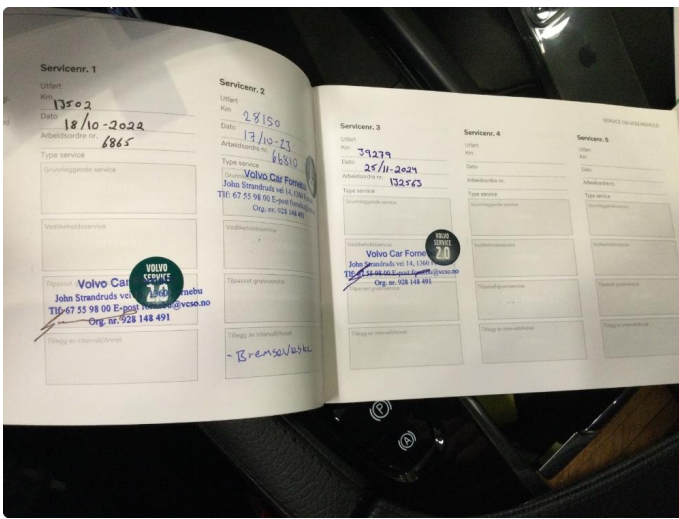 Servicenr. 1
Utført
Km 13502
Dato 18/10-2022
Arbeidsordre nr. 6865
Type service
Grunnleggende service
Vedlikeholdsservice
VOLVO
SERVICE
2.0
Tilpasset
Volvo Car Fornebu
John Strandruds vei 1360
Tlf: 67 55 98 00 E-post fornebu@vcso.no
Org. nr. 928 148 491
Tillegg av intervall/Annet
Servicenr. 2
Utført
Km 28150
Dato 17/10-23
Arbeidsordre nr. 66810
Type service
Volvo Car Fornebu
John Strandruds vei 14, 1360
Tlf: 67 55 98 00 E-post
Org. nr. 928 148 491
Vedlikeholdsservice
Tilpasset grunnservice
Tillegg av intervall/Annet
- Bremsevæske
SERVICE OG VEDLIKEHOLD
Servicenr. 3
Utført
Km 39279
Dato 25/11-2024
Arbeidsordre nr. 132563
Type service
Grunnleggende service
VOLVO
SERVICE
2.0
Volvo Car
John Strandruds vei 14, 1360
Tlf: 67 55 98 00 E-post fornebu@vcso.no
Org. nr. 928 148 491
Tilpasset grunnservice
Tillegg av intervall/Annet
Servicenr. 4
Utført
Km
Dato
Arbeidsordre nr.
Type service
Grunnleggende service
Vedlikeholdsservice
Tilpasset grunnservice
Tillegg av intervall/Annet
Servicenr. 5
Utført
Km
Dato
Arbeidsordre nr.
Type service
Grunnleggende service
Vedlikeholdsservice
Tilpasset grunnservice
Tillegg av intervall/Annet
P
A